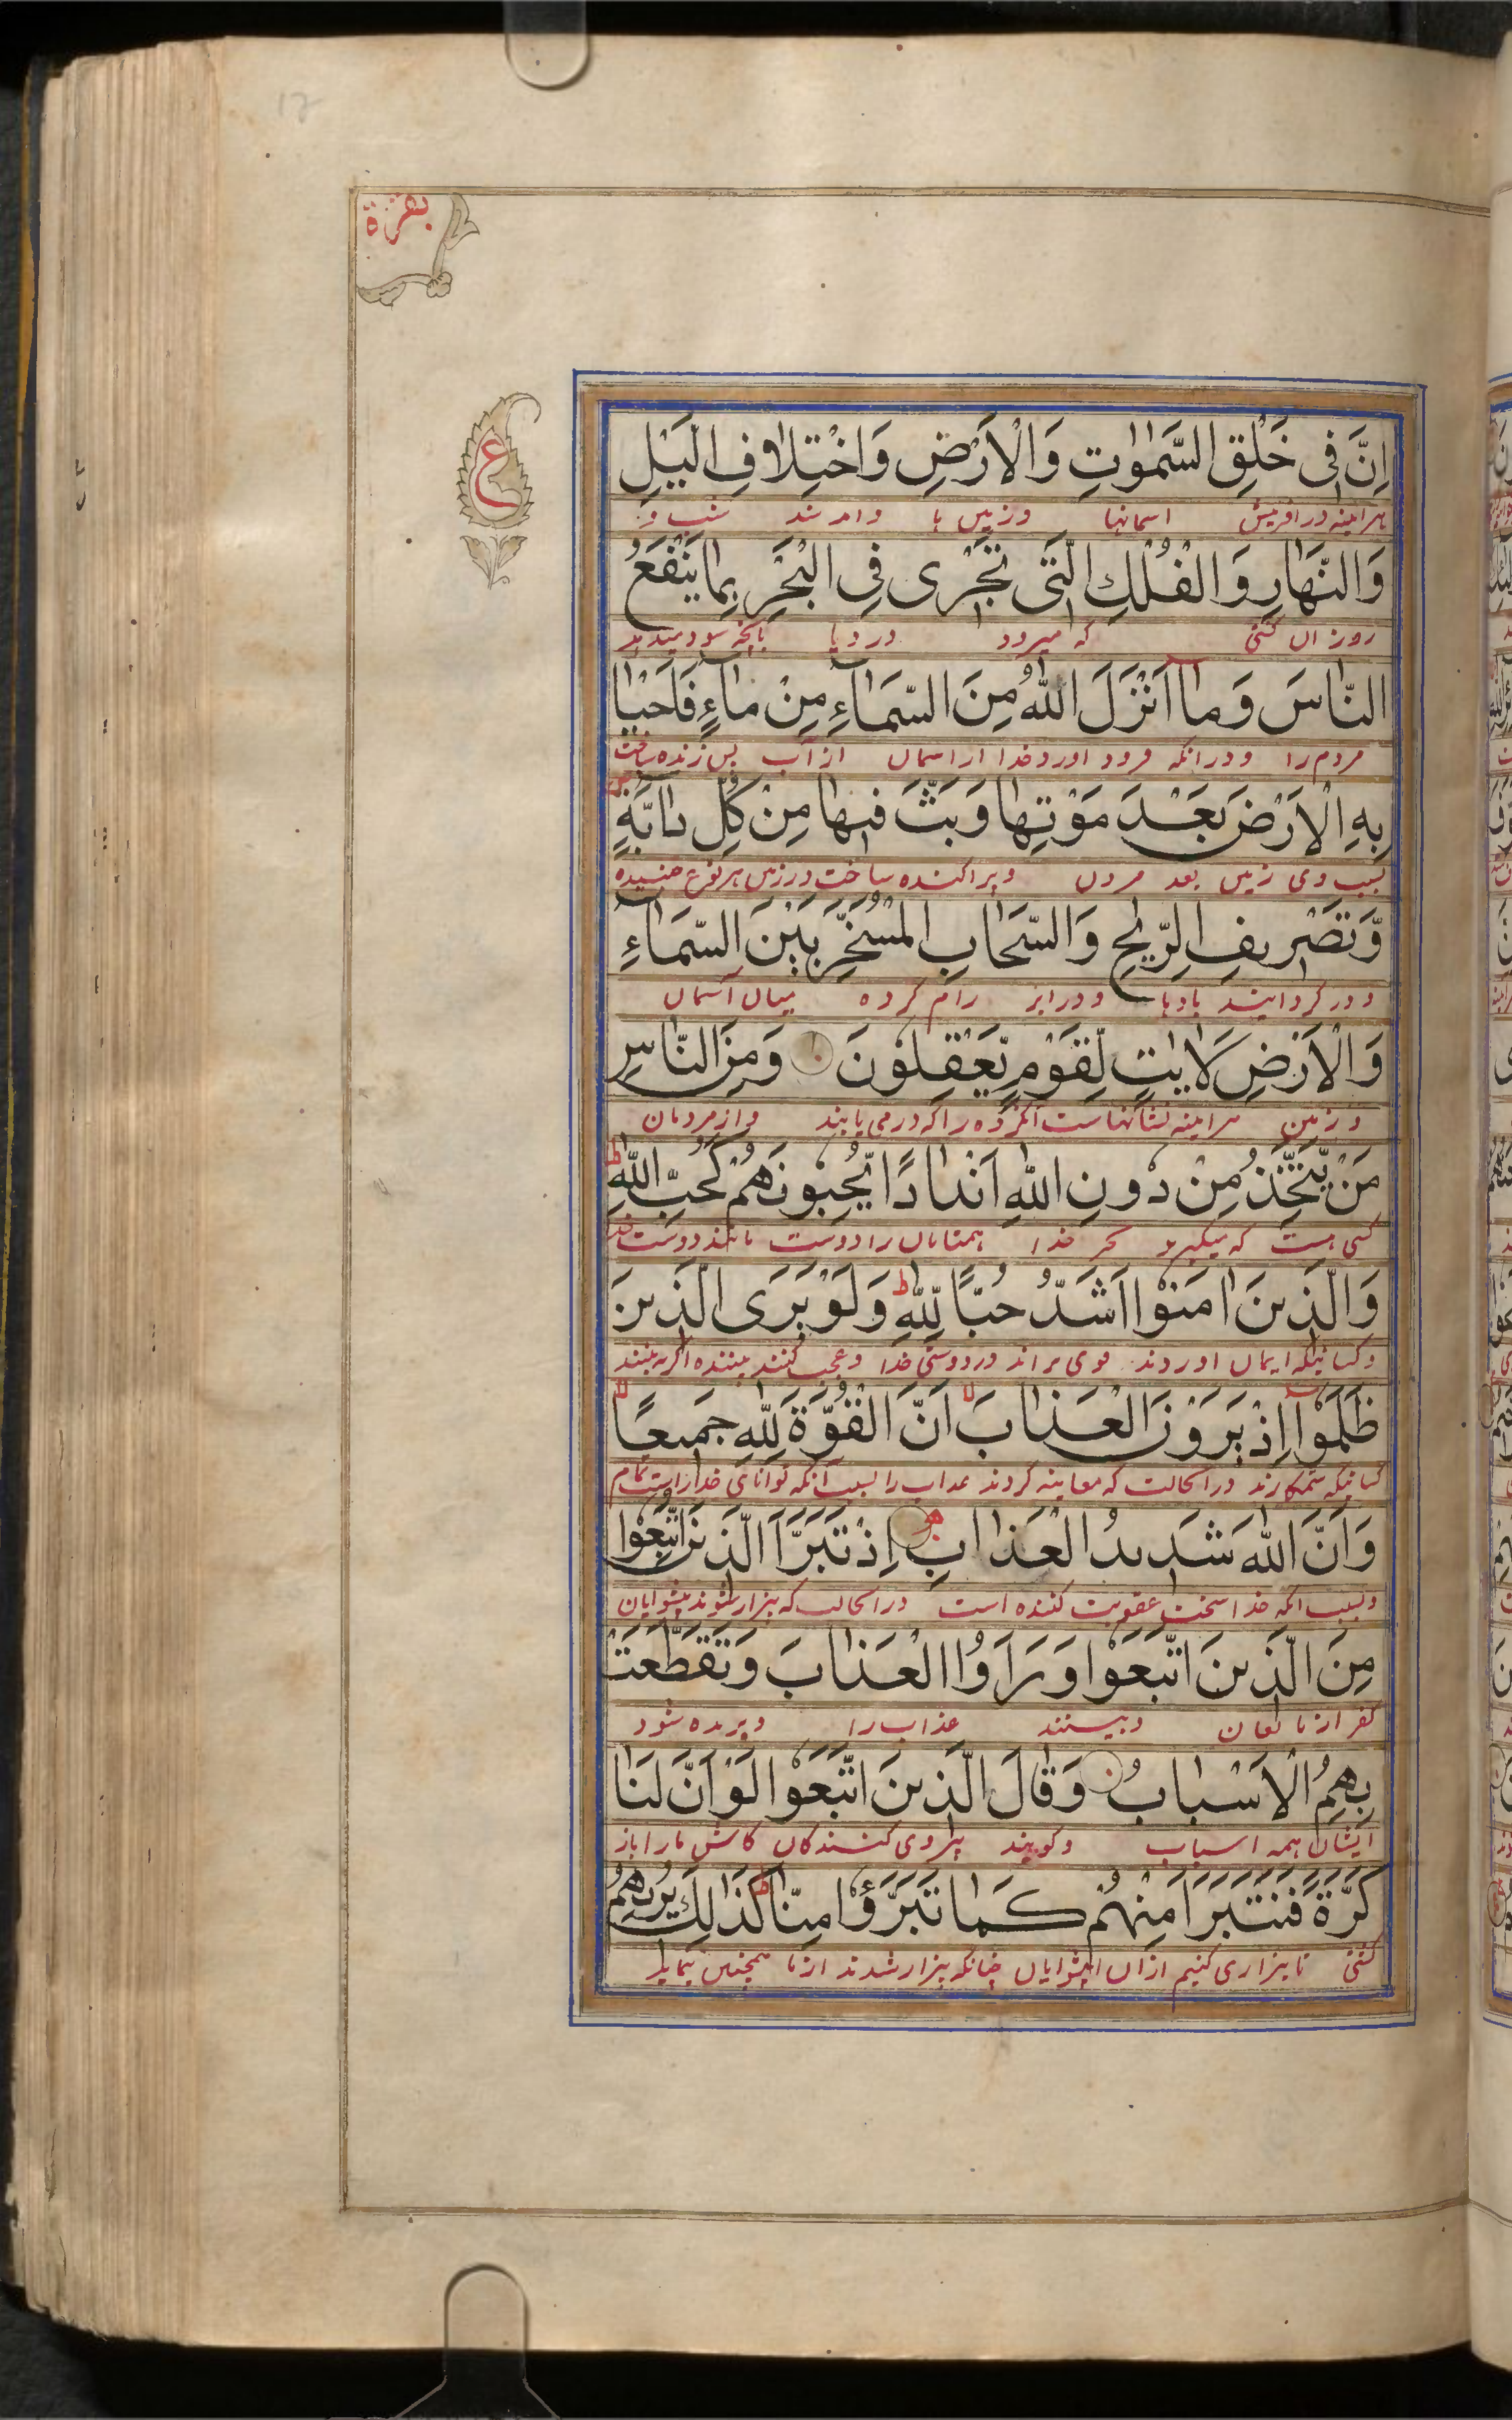 17
بقرة
ع
اِنَّ فِی خَلْقِ السَّمٰوٰتِ وَالْاَرْضِ وَاخْتِلَافِ الَّیْلِ
هرآینه در افرینش اسمانها و زمین ها وامد شد شب و
وَالنَّهَارِ وَالْفُلْكِ الَّتِی تَجْرِی فِی الْبَحْرِ بِمَا یَنْفَعُ
روز ان کشتی که میرود در دریا بانچه سود میدهد
النَّاسَ وَمَا اَنْزَلَ اللّٰهُ مِنَ السَّمَآءِ مِنْ مَآءٍ فَاَحْیَا
مردم را و در انکه فرود اورد خدا از اسمان از آب پس زنده ساخت
بِهِ الْاَرْضَ بَعْدَ مَوْتِهَا وَبَثَّ فِیهَا مِنْ كُلِّ دَآبَّةٍ
بسبب وی زمین بعد مردن و پراکنده ساخت در زمین هر نوع جنبنده
وَّتَصْرِیفِ الرِّیٰحِ وَالسَّحَابِ الْمُسَخَّرِ بَیْنَ السَّمَآءِ
و در کردانیدن بادها و در ابر رام کرده میان آسمان
وَالْاَرْضِ لَاٰیٰتٍ لِّقَوْمٍ یَّعْقِلُوْنَ وَمِنَ النَّاسِ
و زمین هرآینه نشانهاست انکروه را که در می یابند و از مردمان
مَنْ یَّتَّخِذُ مِنْ دُوْنِ اللّٰهِ اَنْدَادًا یُّحِبُّوْنَهُمْ كَحُبِّ اللّٰهِ ط
کسی هست که میکیرد بجز خدا همتایان را دوست مانند دوست خدا
وَالَّذِینَ اٰمَنُوْا اَشَدُّ حُبًّا لِّلّٰهِ ط وَلَوْ یَرَی الَّذِینَ
و کسانیکه ایمان اوردند قوی تر اند در دوستی خدا و عجب کنند بیننده اکر به بینند
ظَلَمُوْا اِذْ یَرَوْنَ الْعَذَابَ لا اَنَّ الْقُوَّةَ لِلّٰهِ جَمِیعًا لا
کسانیکه ستمکارند در انحالت که معاینه کردند عذاب را بسبب آنکه توانای خدا راست تمام
وَاَنَّ اللّٰهَ شَدِیدُ الْعَذَابِ اِذْ تَبَرَّاَ الَّذِینَ اتُّبِعُوْا
و بسبب انکه خدا سخت عقوبت کننده است در انحالت که بیزار شوند پیشوایان
مِنَ الَّذِینَ اتَّبَعُوْا وَرَاَوُا الْعَذَابَ وَتَقَطَّعَتْ
کفر از تابعان و ببینند عذاب را و بریده شود
بِهِمُ الْاَسْبَابُ وَقَالَ الَّذِینَ اتَّبَعُوْا لَوْ اَنَّ لَنَا
ایشان همه اسباب و کویند پیروی کنندکان کاش مارا باز
كَرَّةً فَنَتَبَرَّاَ مِنْهُمْ كَمَا تَبَرَّؤُا مِنَّا ط كَذٰلِكَ یُرِیهِمُ
کشتی تا بیزاری کنیم ازان پیشوایان چنانکه بیزار شدند از ما همچنین بنماید